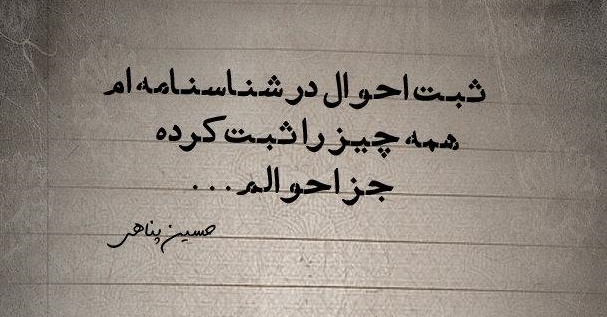 ثبت احوال در شناسنامه ام
همه چیز را ثبت کرده
جز احوالم...
حسین پناهی